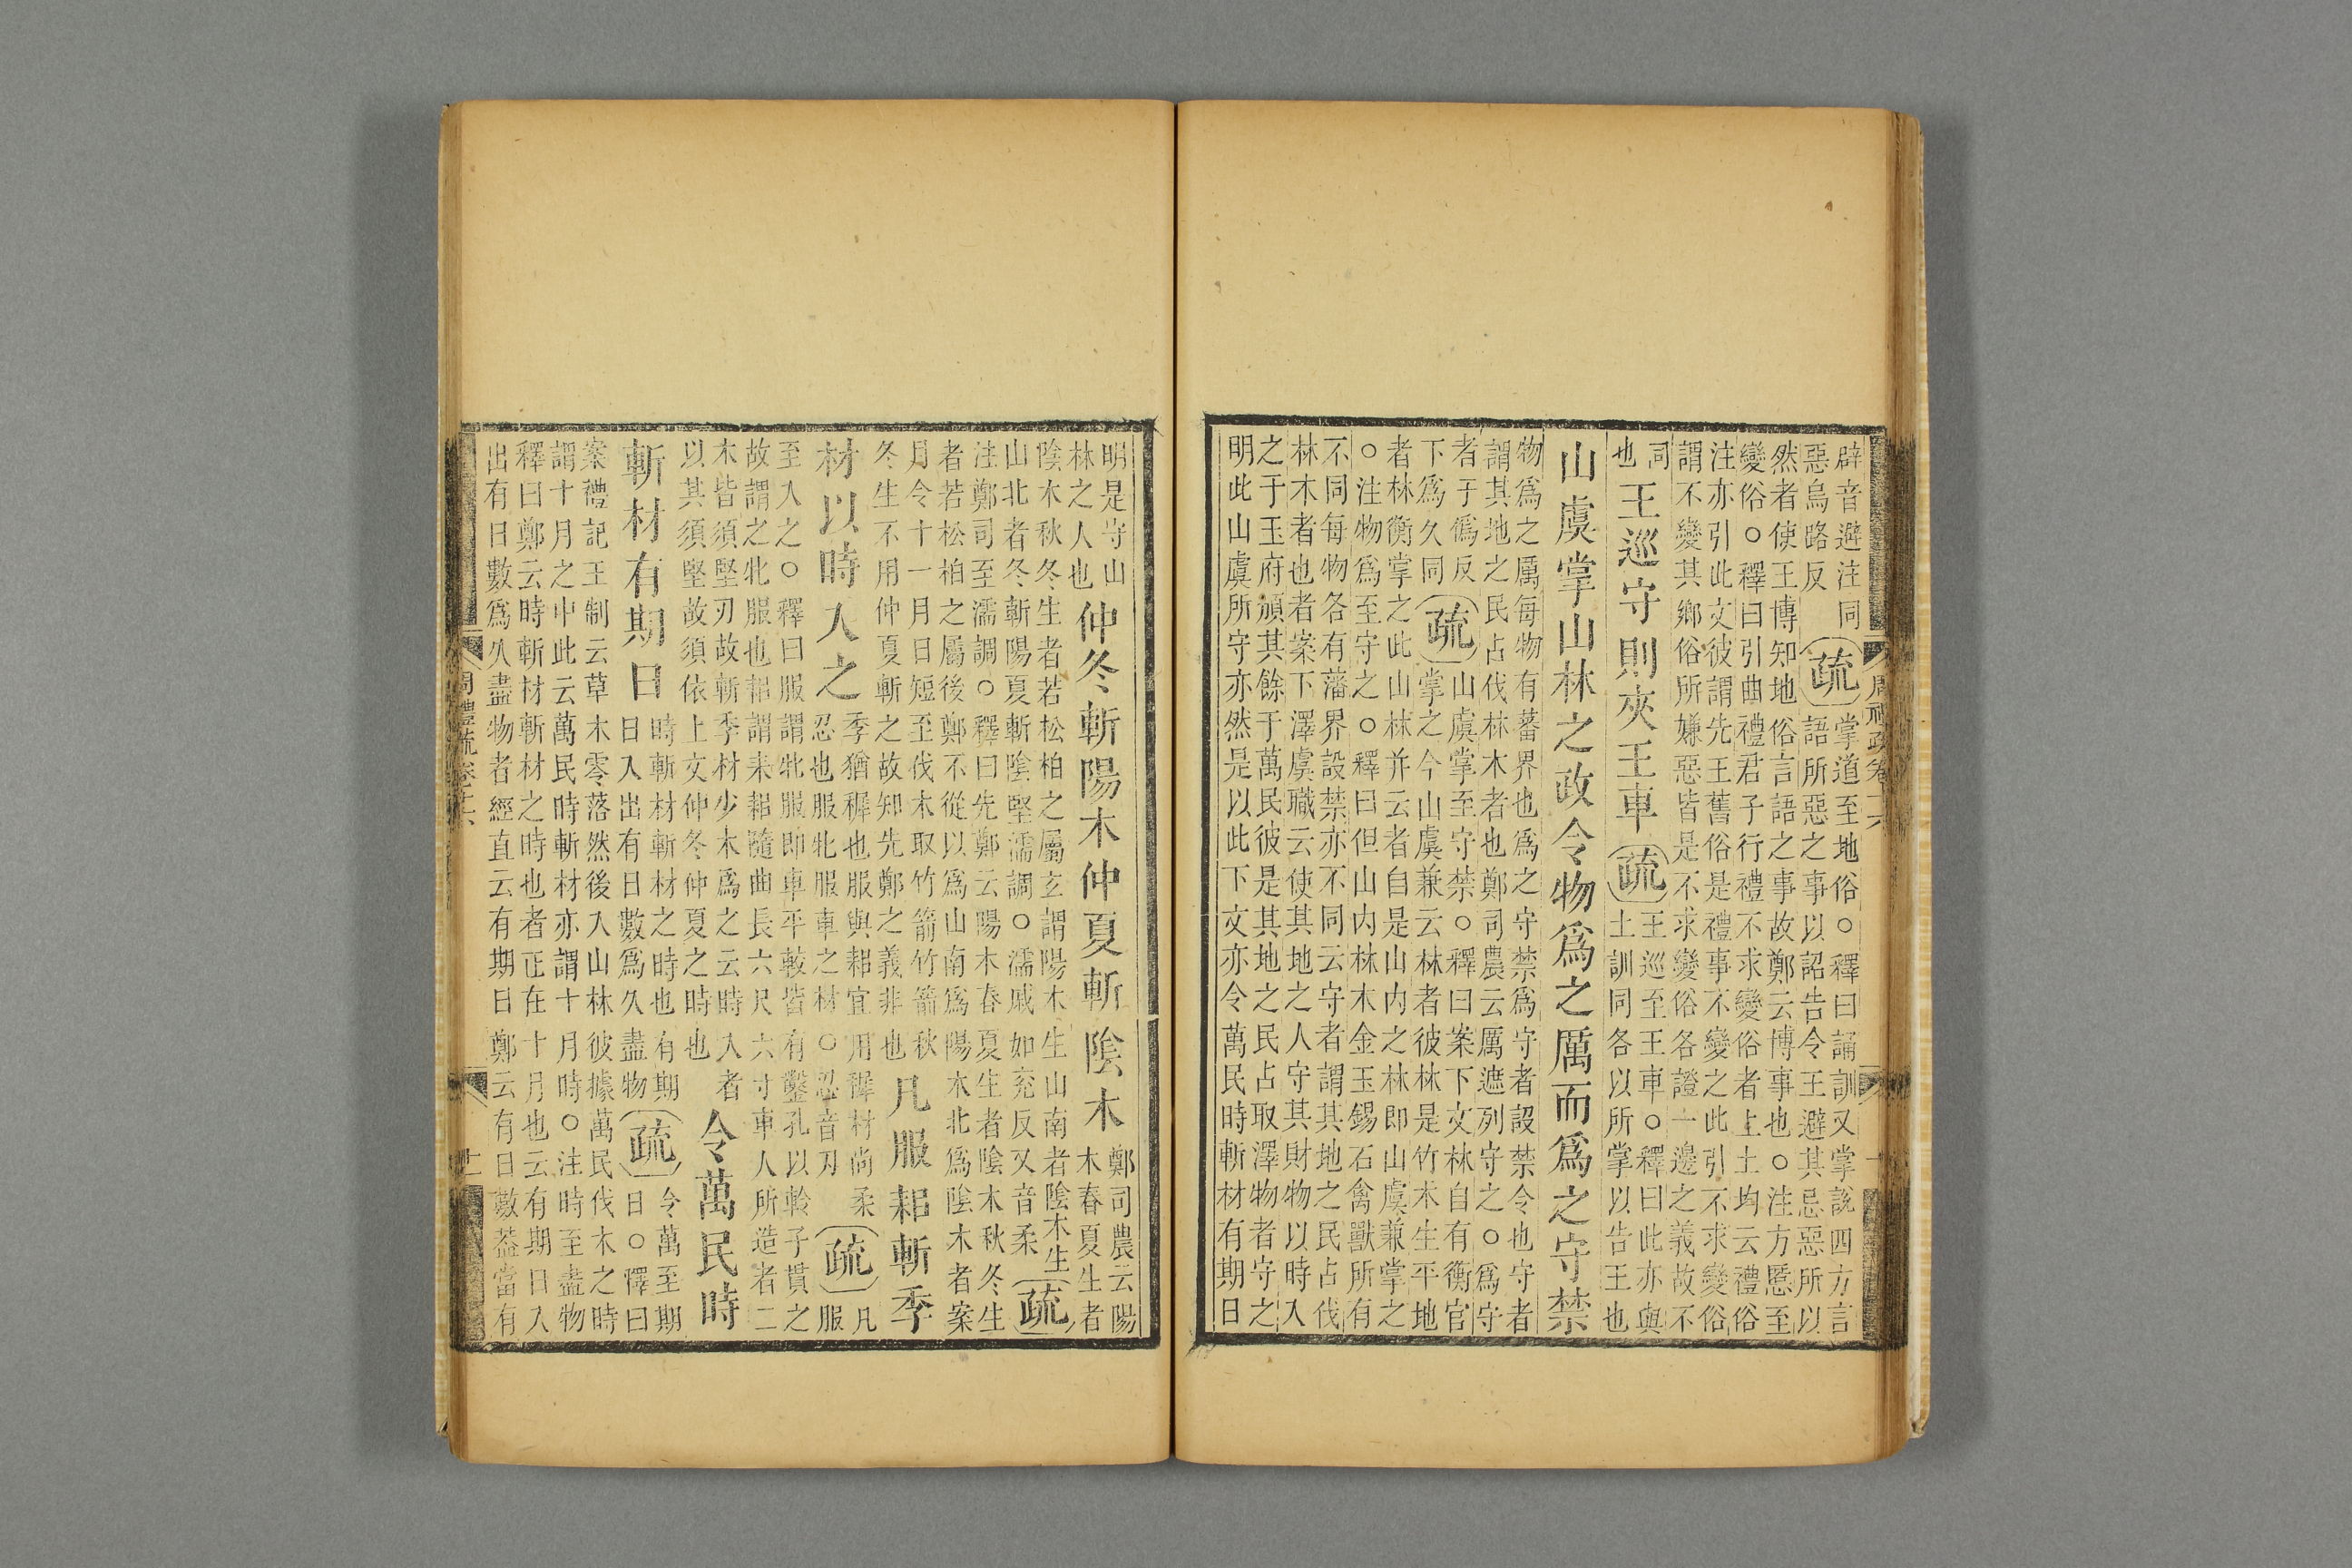 辟音避注同
惡烏路反
疏
掌道至地俗○釋曰誦訓又掌說四方言
語所惡之事以詔告令王避其忌惡所以
然者使王博知地俗言語之事故鄭云博事也○注方慝至
變俗○釋曰引曲禮君子行禮不求變俗者上土均云禮俗
注亦引此文彼謂先王舊俗是禮事不變之此引不求變俗
謂不變其鄉俗所嫌惡皆是不求變俗各證一邊之義故不
同
也
王巡守則夾王車
疏
王巡至王車○釋曰此亦與
土訓同各以所掌以告王也
山虞掌山林之政令物爲之厲而爲之守禁
物爲之厲每物有蕃界也爲之守禁爲守者設禁令也守者
謂其地之民占伐林木者也鄭司農云厲遮列守之○爲守
者于僞反
下爲久同
疏
山虞掌至守禁○釋曰案下文林自有衡官
掌之今山虞兼云林者彼林是竹木生平地
者林衡掌之此山林并云者自是山內之林即山虞兼掌之
○注物爲至守之○釋曰但山內林木金玉錫石禽獸所有
不同每物各有藩界設禁亦不同云守者謂其地之民占伐
林木者也者案下澤虞職云使其地之人守其財物以時入
之于玉府頒其餘于萬民彼是其地之民占取澤物者守之
明此山虞所守亦然是以此下文亦令萬民時斬材有期日
周禮疏卷十六
明是守山
林之人也
仲冬斬陽木仲夏斬陰木
鄭司農云陽
木春夏生者
陰木秋冬生者若松柏之屬玄謂陽木生山南者陰木生
山北者冬斬陽夏斬陰堅濡調○濡戚如兗反又音柔
疏
注鄭司至濡調○釋曰先鄭云陽木春夏生者陰木秋冬生
者若松柏之屬後鄭不從以爲山南爲陽木北爲陰木者案
月令十一月日短至伐木取竹箭竹箭秋
冬生不用仲夏斬之故知先鄭之義非也
凡服耜斬季
材以時入之
季猶穉也服與耜宜用穉材尚柔
忍也服牝服車之材○忍音刃
疏
凡
服
至入之○釋曰服謂牝服即車平較皆有鑿孔以軨子貫之
故謂之牝服也耜謂耒耜隨曲長六尺六寸車人所造者二
木皆須堅刃故斬季材少木爲之云時入者
以其須堅故須依上文仲冬仲夏之時也
令萬民時
斬材有期日
時斬材斬材之時也有期
日入出有日數爲久盡物
疏
令萬至期
日○釋曰
案禮記王制云草木零落然後入山林彼據萬民伐木之時
謂十月之中此云萬民時斬材亦謂十月時○注時至盡物
釋曰鄭云時斬材斬材之時也者正在十月也云有期日入
出有日數爲久盡物者經直云有期日鄭云有日數葢當有
周禮疏卷十六
十一